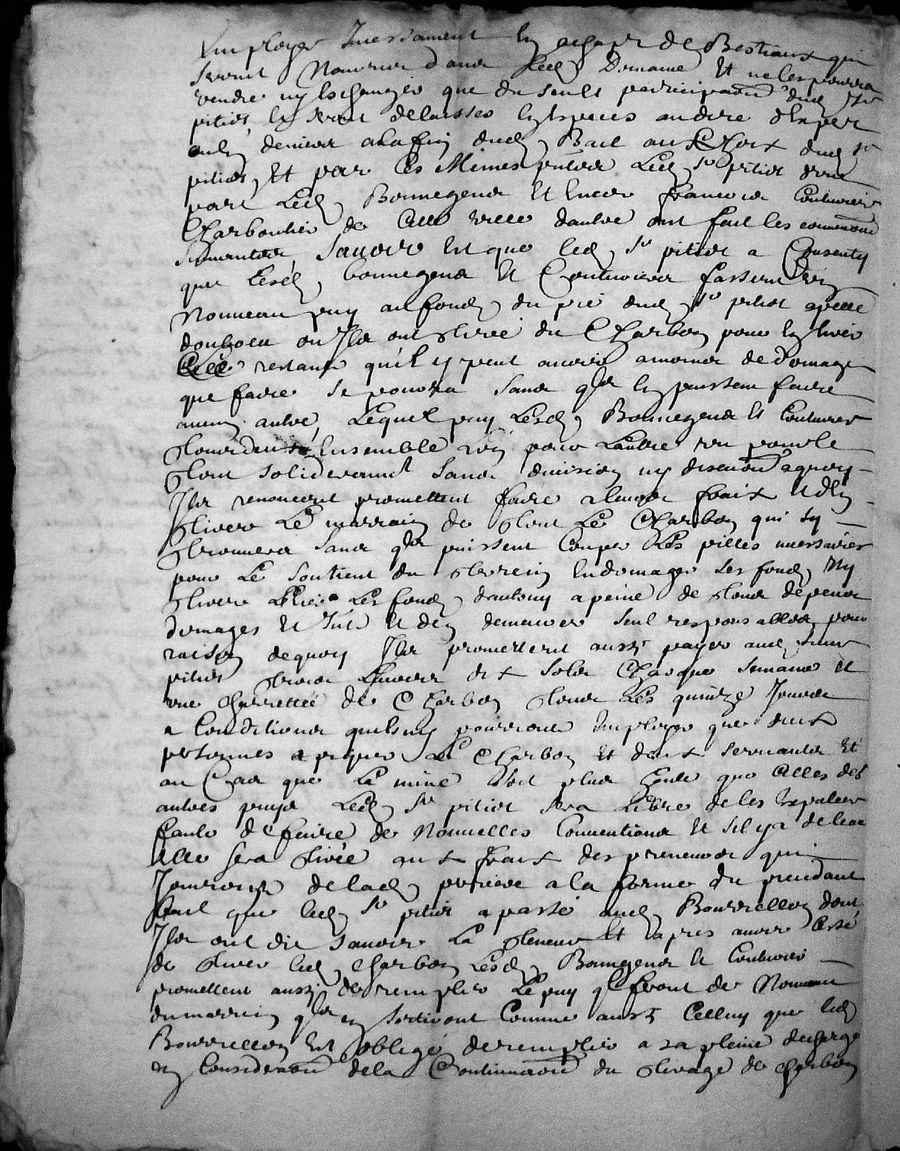 Employer Incessament En achapt de Bestiaux qui
seront Nourris dans led Domaine Et ne les pourra
vendre ny Eschanger que du seult participation dud Sr
pitiot Et seront delaissés En Especes au dire dExpert
a la fin dud Bail au Choix dud Sr
pitiot, Et par Ces Mêmes led Sr pitiot d'une
part Led Bonnegens Et Encor francois Couturier
Charbonier de Cette ville dautre ont fait les conventions
suivantes, Sauoir Est que led Sr pitiot a Consenty
que lesd Bonnegens Et Couturier fassent Un
Nouveau puy au fond du pré dud Sr pitiot apellé
ou Ils ont tiré du Charbon pour En tirer
restant qu'il y peut auoir a moins de domage
que faire se pourra Sans qls En puissent faire
aucun autre, Lequel puy Lesd Bonnegens Et Couturier
Ensemble L'un pour Lautre Un pour le
tout solidairement Sans division ny discution a quoy
Ils renoncent promettent faire a leurs fraix Et d'En
tirer Le marrain de tout Le Charbon qui sy
trouuera Sans qls puissent Couper Les pilles necessaires
pour Le Soutient du terrein Endomager Les fonds Ny
tirer Les fonds d'autruy a peine de tous depens
domages Et Int Et d'En demeurer seul responsables pour
raison de quoy Ils promettent aussi payer aud Sieur
pitiot dix sols Chasque Semaine Et
une Charettée de Charbon tous Les quinze Jours
a Conditions quils ny pourront Employer que deux
personnes a piquer Le Charbon Et deux servants Et
au Cas que La mine soit plus que Celles des
autres puys Led Sr pitiot sera Libre de les Expulser
faute de faire de Nouvelles Conventions Et s'il y a de leau
Elle sera tirée aux fraix des preneurs qui
Jouiront de lad a la forme du precedant
bail que led Sr pitiot a passé aud Bourrellon dont
Ils ont dit sauoir La teneur Et apres auoir Cessé
de tirer led Charbon Lesd Bonnegens Et Couturier
promettent aussi de remplir Le puy q feront de Nouveau
du marrain qls En sortiront Comme aussi Celluy que led
Bourrellon Est obligé de remplir a sa pleine decharge
En Consideration de la Continuation du tirage de Charbon